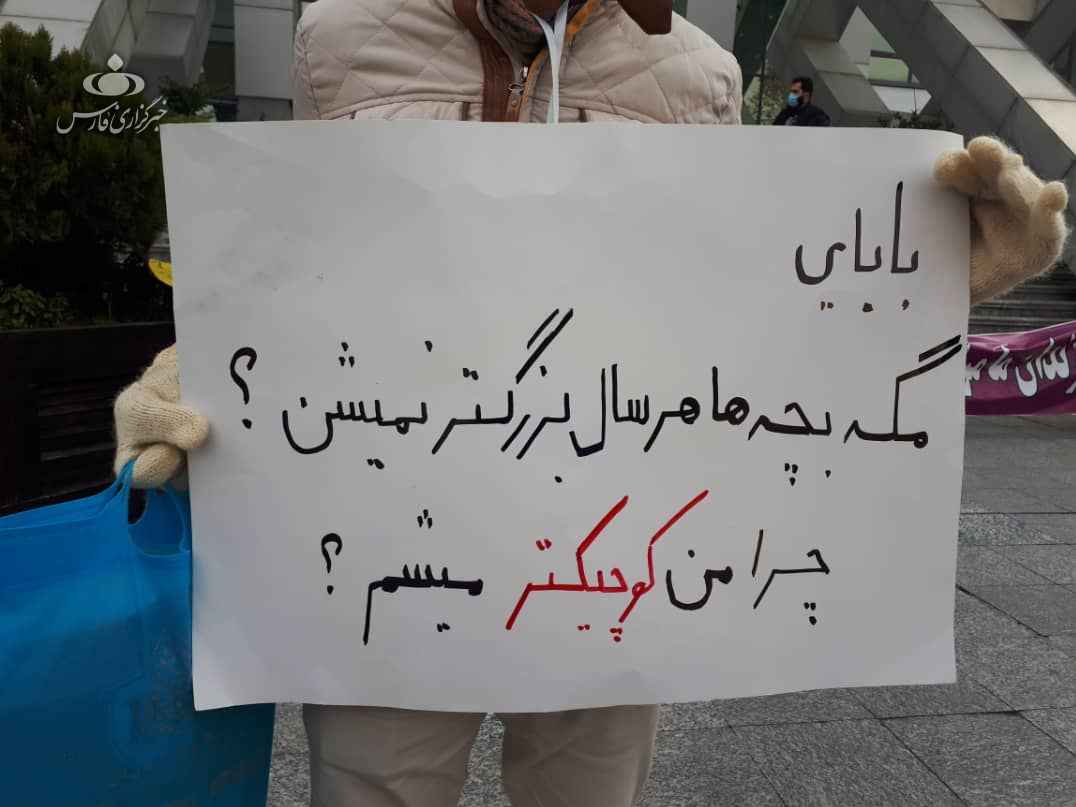 خبرگزاری فارس
بابایی
مگه بچه ها هر سال بزرگتر نمیشن ؟
چرا من کوچیکتر میشم ؟